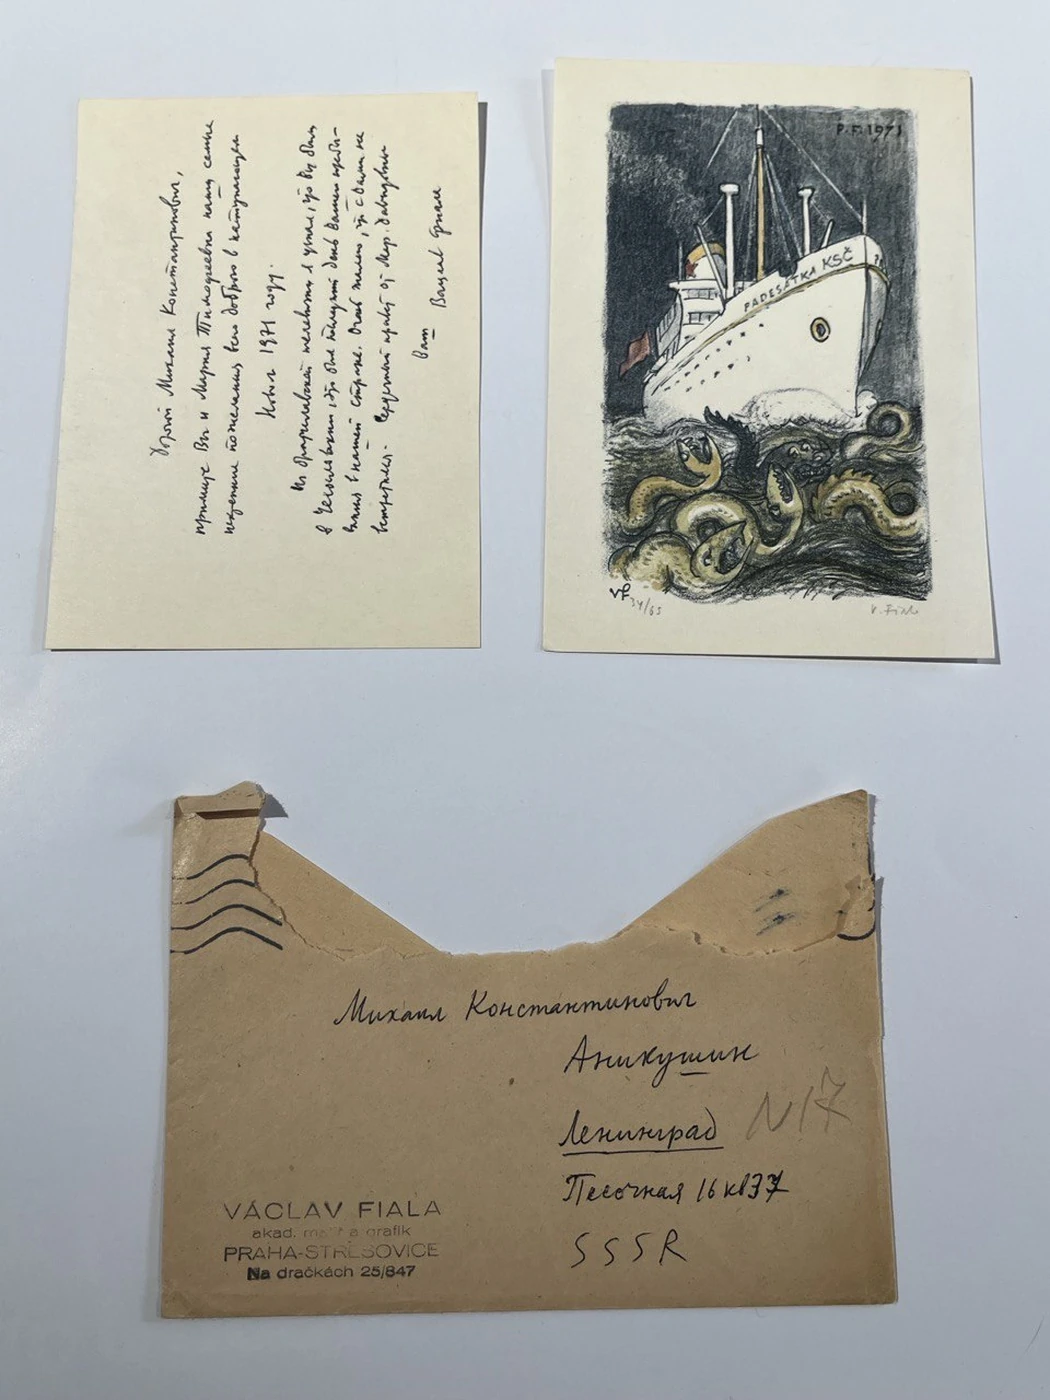 Дорогой Михаил Константинович,
примите Вы и Мария Тимофеевна нашу семье
искренние пожелания всего доброго в наступающем
Новом 1971 году.
Из братиславской я узнал, что Вы были
в Чехословакии, что был день Вашего
в нашей стране. Очень жалею, что с Вами не
встретился. Сердечный привет от Мер. Давидовны
Ваш Вацлав Фиала
P.F. 1971
PADESÁTKA KSČ
VF 34/65
V. Fiala
Михаил Константинович
Аникушин
Ленинград
N17
Песочная 16 кв 37
SSSR
VÁCLAV FIALA
akad. malíř a grafik
PRAHA-STŘEŠOVICE
Na dračkách 25/847